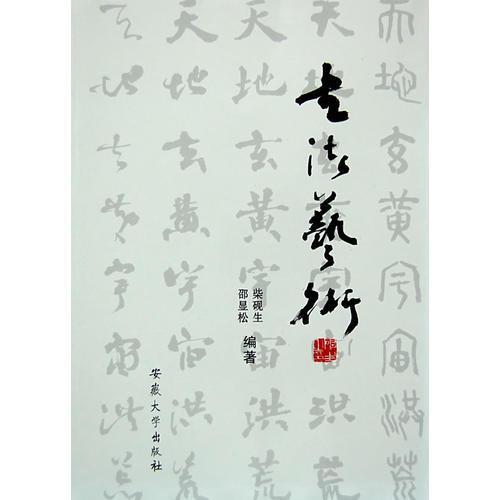 书法藝術
柴砚生
邵显松
编著
安徽大学出版社
天地玄黄宇宙洪荒
天地玄黄宇宙洪荒
天地玄黄宇宙洪荒
天地玄黄宇宙洪荒
天地玄黄宇宙洪荒